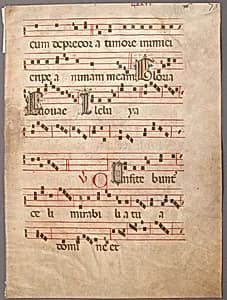 cum deprecor a timore inimici
eripe a nimam meam Gloria
Euouae Allelu ya
V Confite bunt
ce li mirabi li a tu a
domi ne et